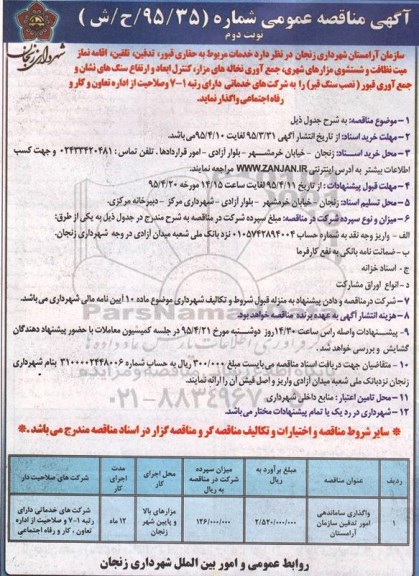 آگهی مناقصه عمومی شماره (۹۵/۳۵/ح/ش)
نوبت دوم
شهرداری زنجان
سازمان آرامستان شهرداری زنجان در نظر دارد خدمات مربوط به حفاری قبور، تدفین، تلقین، اقامه نماز
میت نظافت و شستشوی مزارهای شهری، جمع آوری نخاله های مزار، کنترل ابعاد و ارتفاع سنگ های نشان و
جمع آوری قبور (نصب سنگ قبر) را به شرکت های خدماتی دارای رتبه ۱-۷ وصلاحیت از اداره تعاون و کار و
رفاه اجتماعی واگذار نماید.
۱– موضوع مناقصه: به شرح جدول ذیل
۲– مهلت خرید اسناد: از تاریخ انتشار آگهی ۹۵/۳/۳۱ لغایت ۹۵/۴/۱۰ می باشد.
۳– محل خرید اسناد: زنجان - خیابان خرمشهر - بلوار آزادی - امور قراردادها. تلفن تماس: ۰۲۴۳۳۴۲۰۴۸۱ و جهت کسب
اطلاعات بیشتر به آدرس اینترنتی WWW.ZANJAN.IR مراجعه نمایند.
۴– مهلت قبول پیشنهادات: از تاریخ ۹۵/۴/۱۱ لغایت ساعت ۱۴/۱۵ مورخه ۹۵/۴/۲۰
۵– محل تسلیم اسناد: زنجان - خیابان خرمشهر - بلوار آزادی - شهرداری مرکز - دبیرخانه مرکزی.
۶– میزان و نوع سپرده شرکت در مناقصه: مبلغ سپرده شرکت در مناقصه به شرح مندرج در جدول ذیل به یکی از طرق:
الف - واریز وجه نقد به شماره حساب ۰۱۰۵۷۴۲۸۹۴۰۰۴ نزد بانک ملی شعبه میدان آزادی در وجه شهرداری زنجان.
ب - ضمانت نامه بانکی به نفع کارفرما
ج - اسناد خزانه
د - انواع اوراق مشارکت
۷– شرکت در مناقصه و دادن پیشنهاد به منزله قبول شروط و تکالیف شهرداری موضوع ماده ۱۰ آیین نامه مالی شهرداری می باشد.
۸– هزینه انتشار آگهی به عهده برنده مناقصه خواهد بود.
۹– پیشنهادات واصله راس ساعت ۱۴/۳۰ روز دوشنبه مورخ ۹۵/۴/۲۱ در جلسه کمیسیون معاملات با حضور پیشنهاد دهندگان
گشایش و بررسی خواهد شد.
۱۰– متقاضیان جهت دریافت اسناد مناقصه می بایست مبلغ ۳۰۰/۰۰۰ ریال به حساب شماره ۳۱۰۰۰۰۲۴۴۸۰۰۶ بنام شهرداری
زنجان نزد بانک ملی شعبه میدان آزادی واریز و اصل فیش آن را ارائه نمایند.
۱۱– محل تامین اعتبار: منابع داخلی شهرداری
۱۲– شهرداری در رد یک یا تمام پیشنهادات مختار می باشد.
* سایر شروط مناقصه و اختیارات و تکالیف مناقصه گر و مناقصه گزار در اسناد مناقصه مندرج می باشد. *
ردیف | عنوان مناقصه | مبلغ برآورد به ریال | میزان سپرده شرکت در مناقصه به ریال | محل اجرای کار | مدت اجرای کار | شرکت های صلاحیت دار
۱ | واگذاری ساماندهی امور تدفین سازمان آرامستان | ۲/۵۲۰/۰۰۰/۰۰۰ | ۱۲۶/۰۰۰/۰۰۰ | مزارهای بالا و پایین شهر زنجان | ۱۲ ماه | شرکت های خدماتی دارای رتبه ۱-۷ و صلاحیت از اداره تعاون، کار و رفاه اجتماعی
روابط عمومی و امور بین الملل شهرداری زنجان
ParsNamad
۰۲۱-۸۸۳۴۹۶۷۰